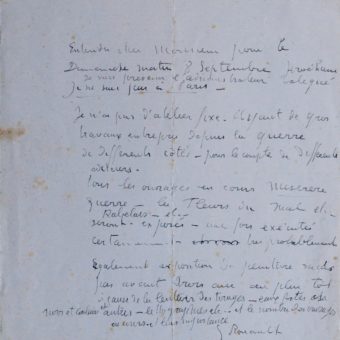 Entendu cher Monsieur pour le
Dimanche matin 8 Septembre
je vous préviens l'administrateur
je ne suis pas à Paris -
Je n'ai pas d'atelier fixe. Ayant de gros
travaux entrepris depuis la guerre
de différents côtés - pour le compte de différents
éditeurs -
Tous les ouvrages en cours Miserere
guerre - les Fleurs du mal etc
Rabelais - etc
seront exposés - une fois exécutés
certainement très probablement
Egalement exposition de peinture
pas avant trois ans au plus tôt
à cause de la lenteur des tirages - eaux fortes
noirs et couleurs et le nombre d'ouvrages
en cours et leur importance
G Rouault